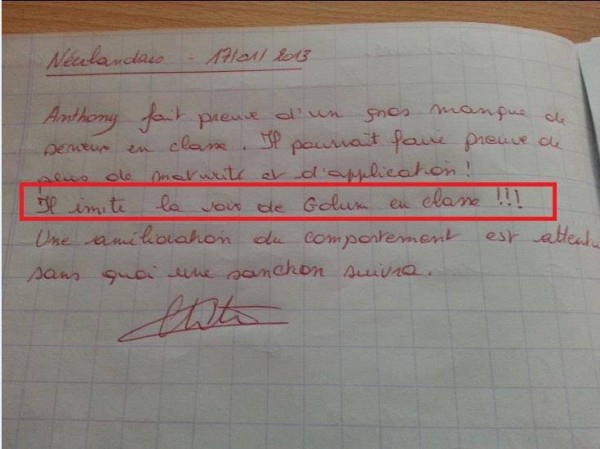 Néerlandais - 17/01/2013
Anthony fait preuve d'un gros manque de
sérieux en classe. Il pourrait faire preuve de
plus de maturité et d'application !
Il imite la voix de Golum en classe !!!
Une amélioration du comportement est attendue
sans quoi une sanction suivra.